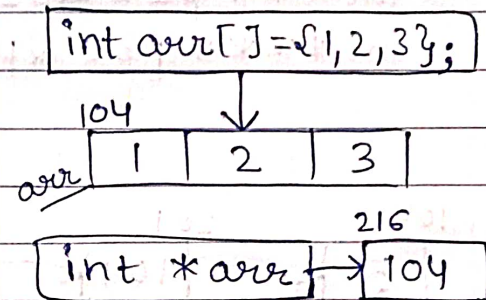 int arr[]={1,2,3};
104
arr 1 2 3
216
int *arr 104